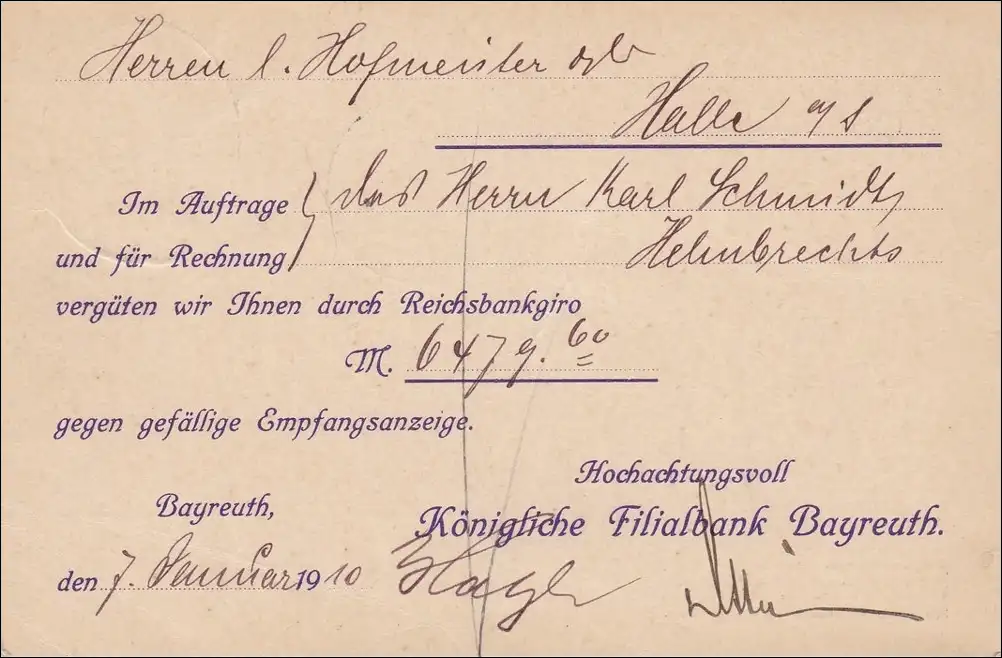 Herren L. Hofmeister
Halle a/S
Im Auftrage des Herrn Karl Schmidt,
und für Rechnung Helmbrechts
vergüten wir Ihnen durch Reichsbankgiro
M. 6479.60
gegen gefällige Empfangsanzeige.
Hochachtungsvoll
Bayreuth,
Königliche Filialbank Bayreuth.
den 7. Januar 1910